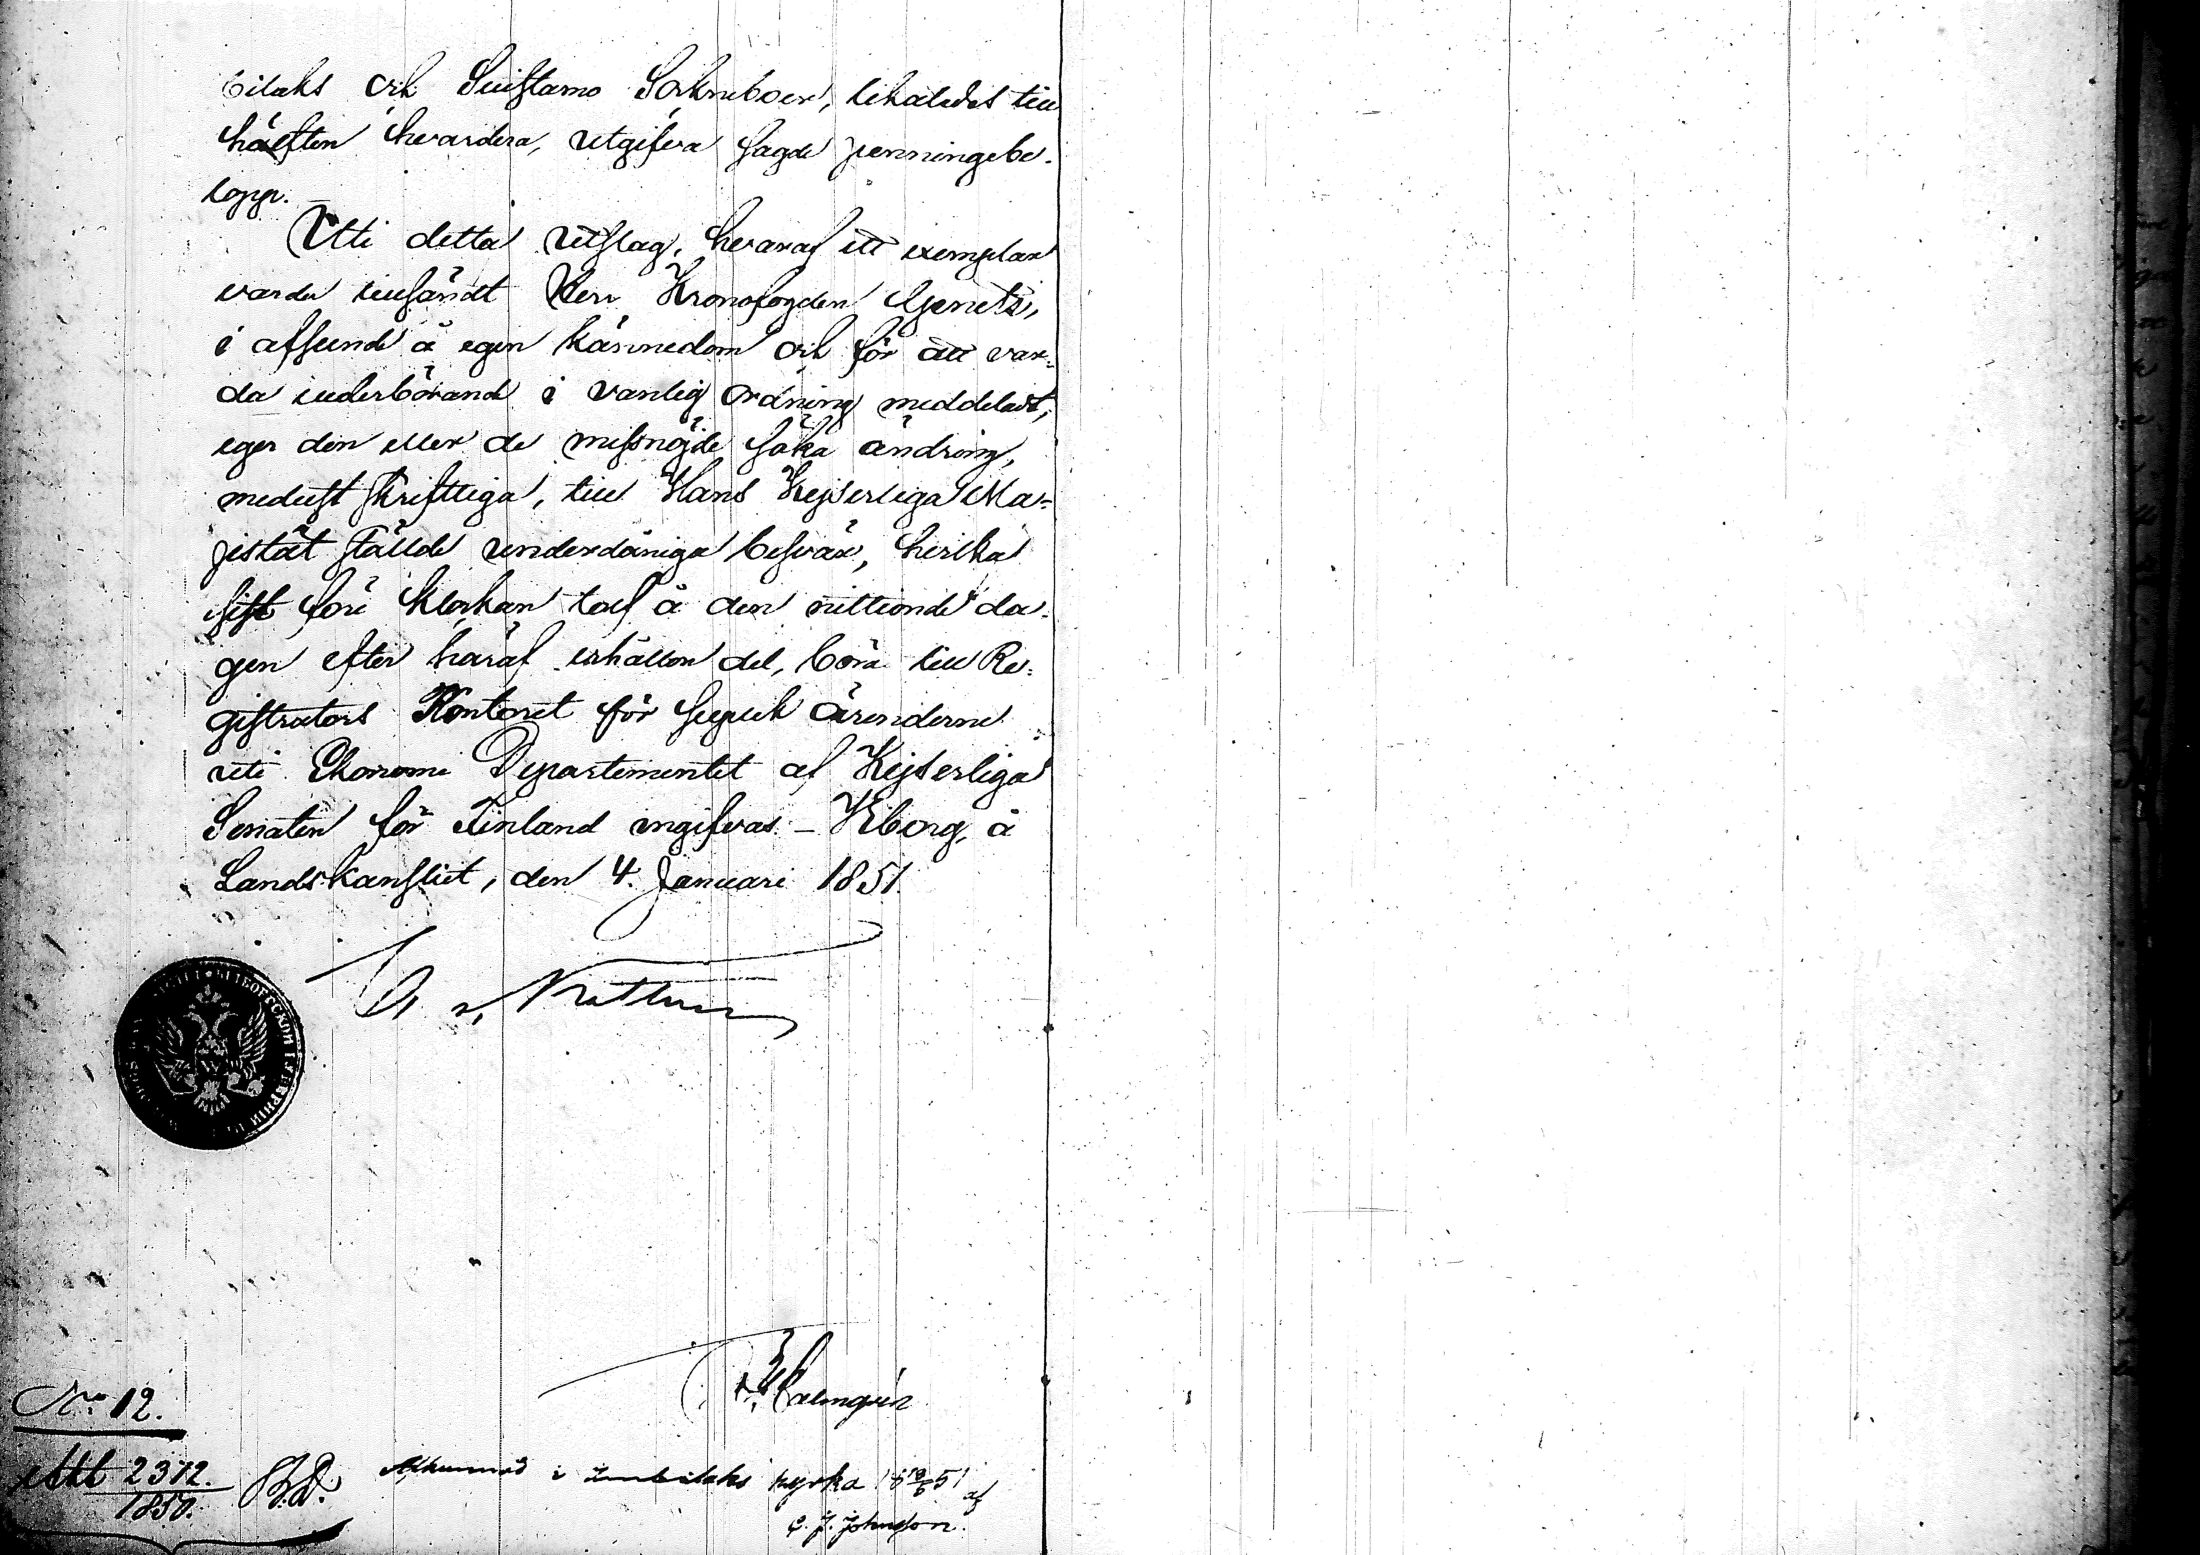 bilaks och Suistamo Sockneboer, likaledes till
hälften hvardera, utgifva sagde penningebe-
lopp.
Uti detta utslag, hvaraf ett exemplar
varder tillsändt Herr Kronofogden Genetz,
i afseende å egen kännedom och för att var-
da vederbörande i vanlig ordning meddeladt,
eger den eller de missnöjde söka ändring,
medelst skriftliga, till Hans Kejserliga Ma-
jestät ställde underdåniga besvär, hvilka
sist före klockan tolf å den nittionde da-
gen efter häraf erhållen del, böra till Re-
gistrators Kontoret för supplik ärenderne
uti Ekonomi Departementet af Kejserliga
Senaten för Finland ingifvas. – Wiborg, å
Landskansliet, den 4. Januari 1851.
No 12.
Malmgrén
2372.
1850.
Afkunnad i Imbilaks kyrka 18 51 af
C. J. Johnsson.